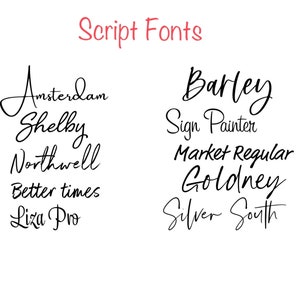 Script Fonts
Amsterdam
Shelby
Northwell
Better times
Liza Pro
Barley
Sign Painter
Market Regular
Goldney
Silver South